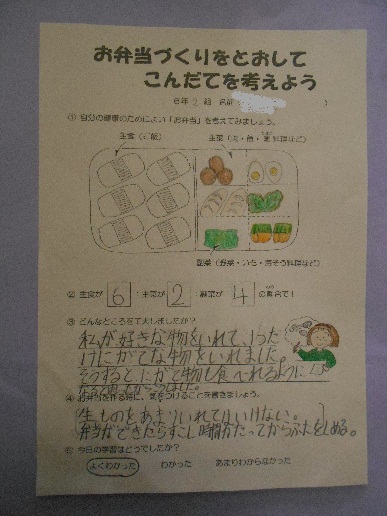 お弁当づくりをとおして
こんだてを考えよう
6年 2 組 名前( )
① 自分の健康のためによい「お弁当」を考えてみましょう。
主食(ご飯) 主菜(肉・魚・卵料理など)
副菜(野菜・いも・海そう料理など)
② 主食が 6 : 主菜が 2 : 副菜が 4 の割合で!
③ どんなところを工夫しましたか?
私が好きな物をいれて、1つだ
けにがてな物をいれました。
そうすると、にがて物も食べれるように
なると思ったからこうしました。
④ お弁当を作る時に、気をつけることを書きましょう。
生ものをあまりいれてはいけない。
弁当ができたらすこし時間がたってからふたをしめる。
⑤ 今日の学習はどうでしたか?
よくわかった わかった あまりわからなかった